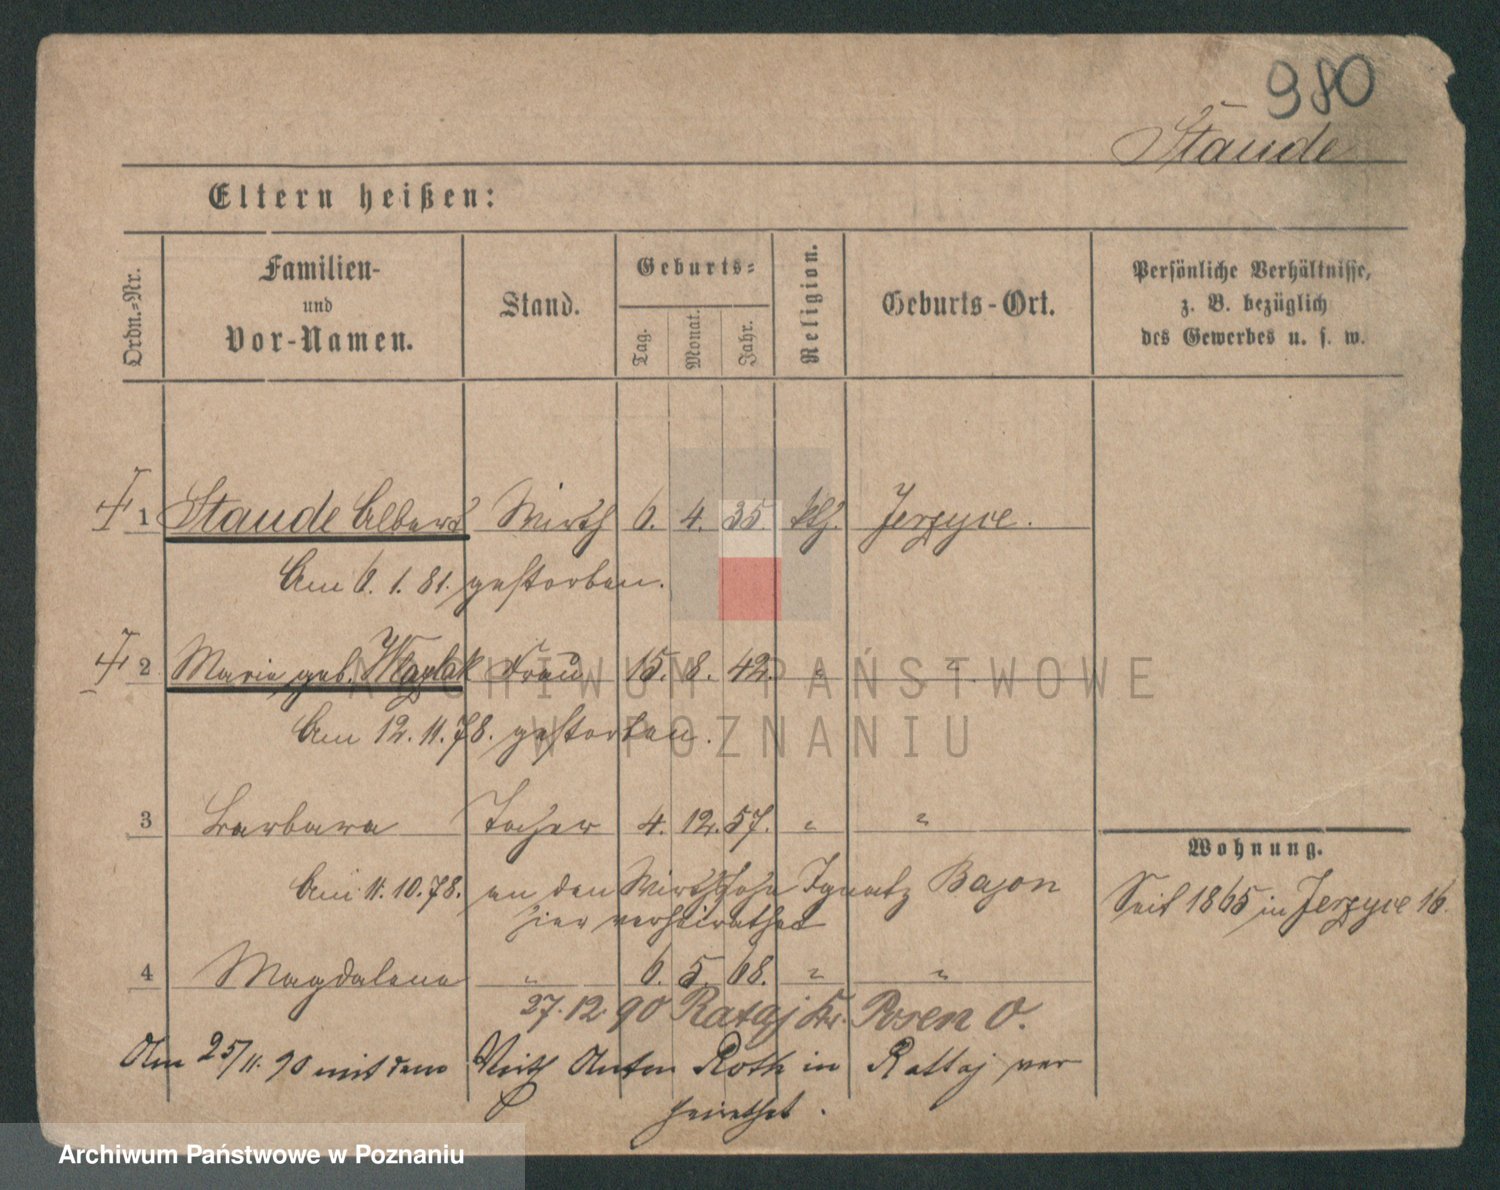 980
Staude
Eltern heißen:
Ordn.-Nr.
Familien- und Vor-Namen.
Stand.
Geburts-
Tag.
Monat.
Jahr.
Religion.
Geburts-Ort.
Persönliche Verhältnisse, z. B. bezüglich des Gewerbes u. s. w.
1 Staude Albert Wirth 6. 4. 35. kth. Jerzyce.
Am 6. 1. 81. gestorben.
2 Marie geb. Frau 15. 8. 42. " "
Am 12. 11. 78. gestorben.
3 Barbara Tochter 4. 12. 57. " "
Am 11. 10. 78. an den Wirthssohn Ignatz Bajon
hier verheirathet
Wohnung.
Seit 1865 in Jerzyce 16.
4 Magdalena " 6. 5. 68. " "
27. 12. 90 Rataj Kr. Posen O.
Am 25/11. 90 mit dem Wirth Anton Roth in Rattaj ver
heirathet.
ARCHIWUM PAŃSTWOWE
W POZNANIU
Archiwum Państwowe w Poznaniu